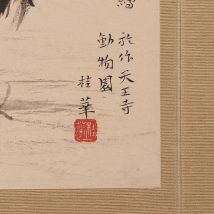 於作天王寺
動物園
桂華